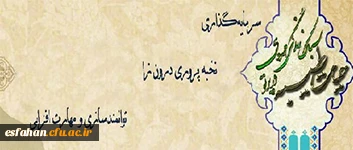 سرمایه‌گذاری
نخبه پروری درون زا
توانمندسازی و مهارت افزایی
حیات طیبه
esfahan.cfu.ac.ir